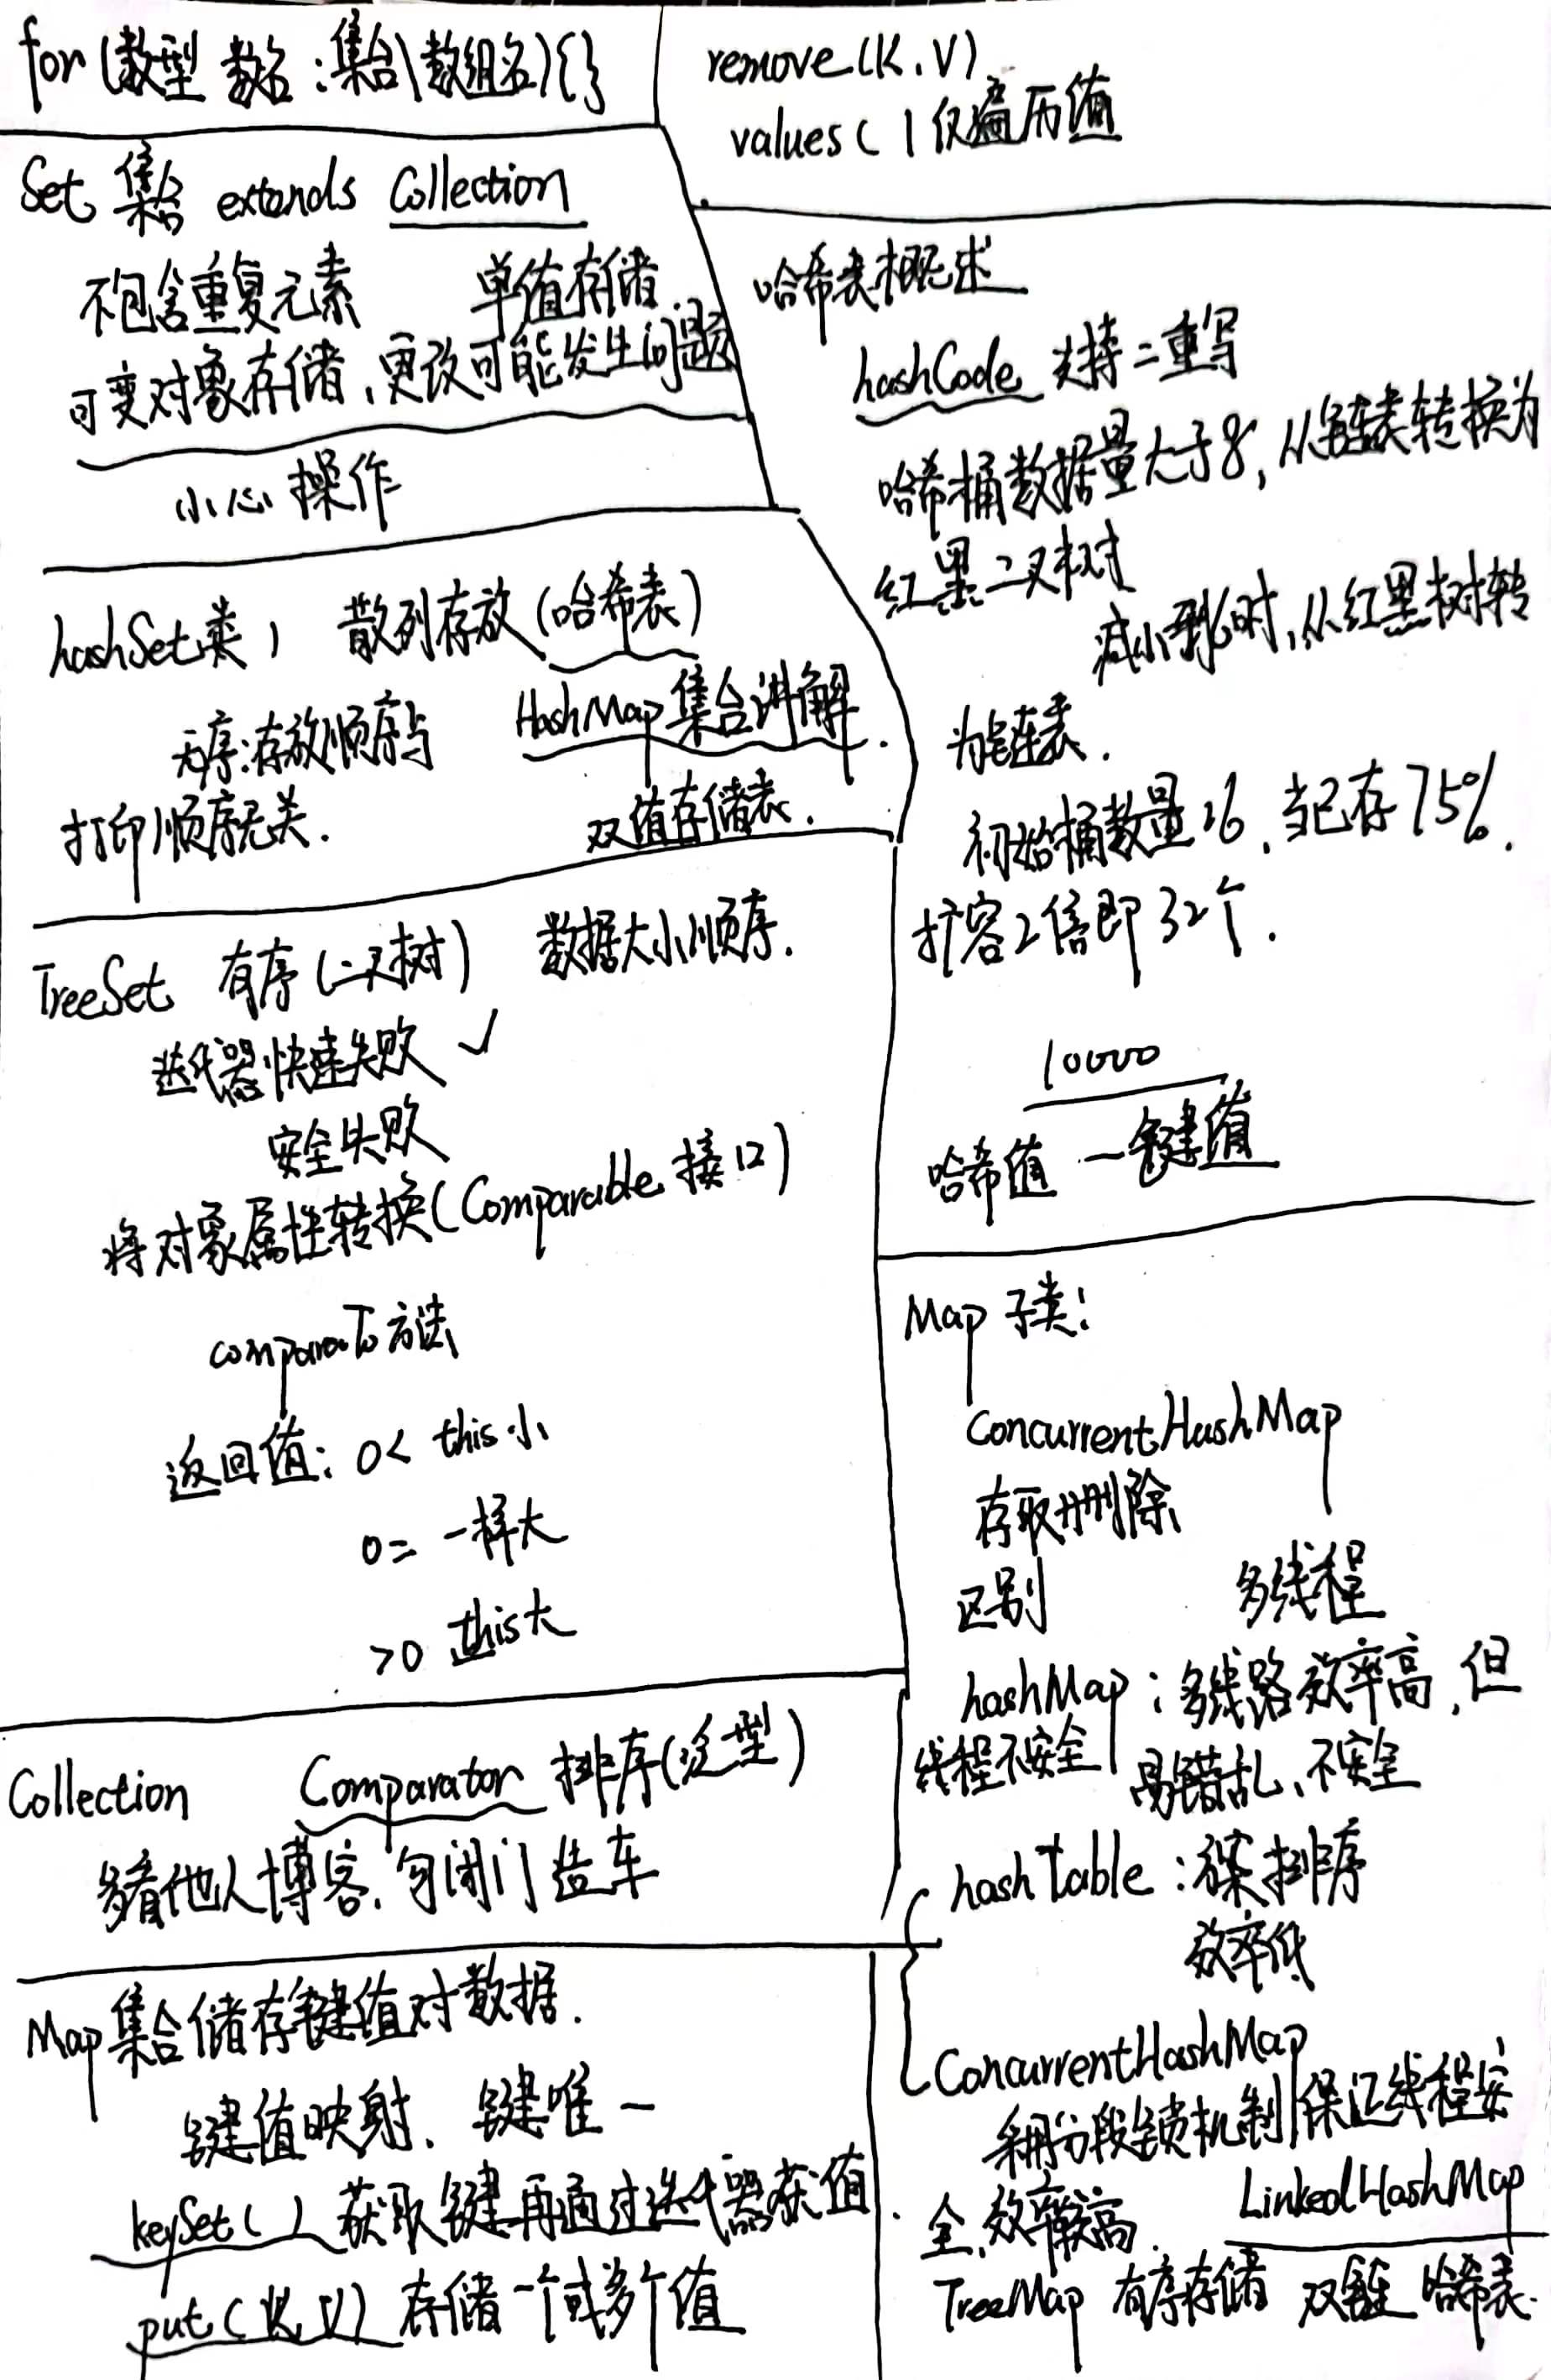 for (数型 数名 : 集合\数组名){}
Set 集合 extends Collection
不包含重复元素 单值存储.
可变对象存储, 更改可能发生问题
小心 操作
hashSet类, 散列存放 (哈希表)
无序:存放顺序与 HashMap 集合讲解.
打印顺序无关. 双值存储表.
TreeSet 有序 (二叉树) 数据大小顺序.
迭代器 快速失败 ✓
安全失败
将对象属性转换 (Comparable 接口)
compareTo 方法
返回值: 0< this小
0= 一样大
>0 this大
Collection Comparator 排序(泛型)
多看他人博客, 勿闭门造车
Map 集合储存键值对数据.
键值映射、键唯一
keySet( ) 获取键再通过迭代器获值.
put (K, V) 存储一个或多个值
remove (K, V)
values ( ) 仅遍历值
哈希表概述
hashCode 支持二重写
哈希桶数据量大于8, 从链表转换为
红黑二叉树
减小到6时, 从红黑树转
为链表.
初始桶数量16, 当已存75%.
扩容2倍即32个.
10000
哈希值 一键值
Map 子类:
ConcurrentHashMap
存取删除
区别 多线程
hashMap : 多线路效率高, 但
线程不安全 易错乱、不安全
hashTable : 排序
效率低
ConcurrentHashMap
采用分段锁机制保证线程安
全, 效率较高. LinkedHashMap
TreeMap 有序存储 双 哈希表.